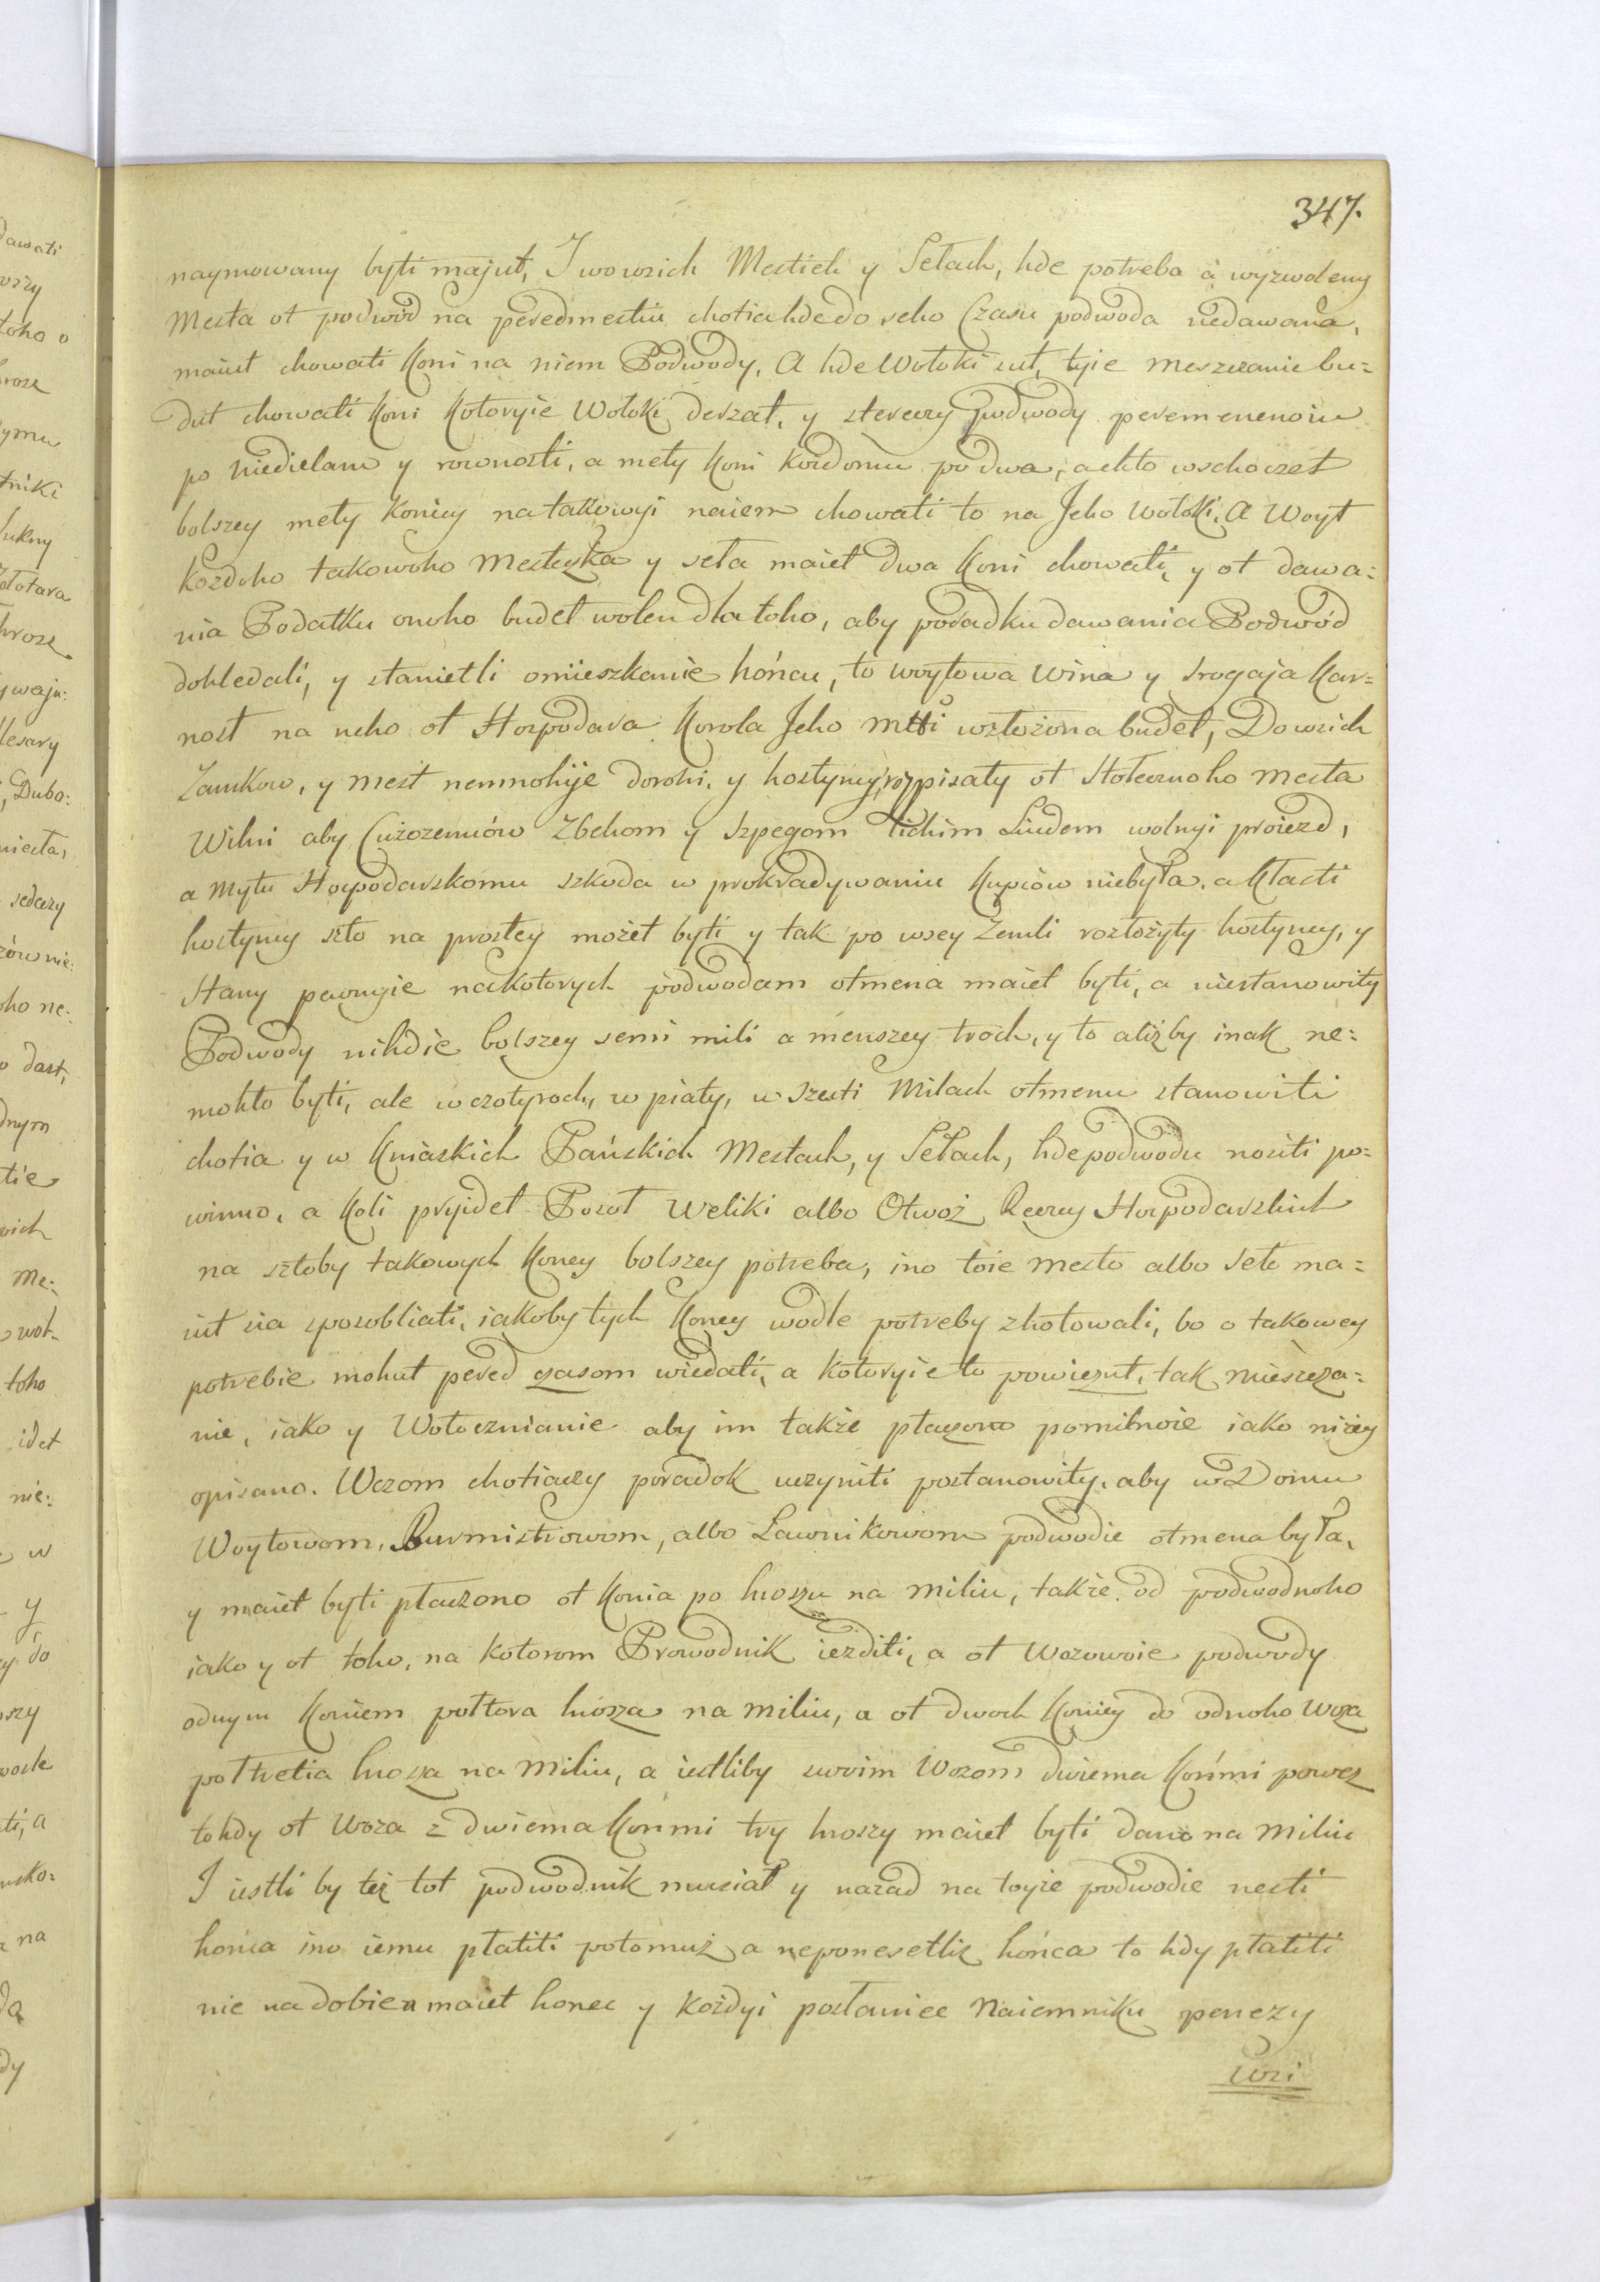 347.
naymowany byti majut, I wowsich Mestich y Sełach, hde potreba à wyzwoleny
Mesta ot podwód na peredmestiu chotiahdedo seho Czasu podwoda niedawana,
maiut chowati Koni na niem Podwody, A hde Wołoki sut, tyie Meszczanie bu=
dut chowati Koni Kotoryie Wołoki derżat, y stereczy podwody peremenenoiu
po Niedielam y rownosti, a mety Koni Kożdomu po dwa, a chto wschoczet
bolszey mety Koniey na takowyi naiem chowati to na Jeho Wołoki. A Woyt
Kożdoho takowoho Mesteczka y seła maiet dwa Koni chowati, y ot dawa=
nia Podatku onoho budet wolen dla toho, aby poradku dawania Podwód
dohledali, y stanietli omieszkanie hońcu, to woytowa Wina y srogaja Kar=
nost na neho ot Hospodara Korola Jeho Mtti wzłożona budet, Do wsich
Zamkow, y Mest nemnohije dorohi, y hostyncy rozpisaty ot Stołecznoho Mesta
Wilni aby Cużozemców Zbehom y Szpegom lichim Liudem wolnyi proiezd,
a Mytu Hospodarskomu szkoda w prokradywaniu Kupców niebyła. a Kłasti
hostyncy szto na prostey możet byti y tak po wsey Zemli rozłożyty hostyncy, y
Stany pewnyie na Kotorych podwodam otmena maiet byti, a niestanowity
Podwody nihdie bolszey semi mili a menszey troch, y to aliżby inak ne=
mohło byti, ale w czotyroch, w piaty, w szesti Milach otmenu stanowiti
chotia y w Kniaskich Pańskich Mestach, y Sełach, hde podwodu nositi po=
winno, a Koli pryidet Posoł Weliki albo Otwoż Reczey Hospodarskich
na sztoby takowych Koney bolszey potreba, ino toie Mesto albo Seło ma=
iut sia sposobliati, iakoby tych Koney wodle potreby zhotowali, bo o takowey
potrebie mohut pered czasom wiedati, a kotoryie to powiezut, tak mieszcza=
nie, iako y Wołocznianie aby im także płaczono pomilnoie iako niżey
opisano. Wczom chotiaczy poradok uczyniti postanowity, aby w Domu
Woytowom, Burmistrowom, albo Ławnikowom podwodie otmena była,
y maiet byti płaczono ot Konia po hroszu na Miliu, także od podwodnoho
iako y ot toho, na kotorom Prowodnik iezditi, a ot Wozowoie podwody
odnym Koniem połtora hrosza na Miliu, a ot dwoch Koniey do odnoho Woza
połtretia hrosza na Miliu, a iestliby swoim Wozom dwiema Końmi powez
tohdy ot Woza z dwiema Końmi try hroszy maiet byti dano na Miliu
I iestli by też tot podwodnik musiał y nazad na toyże podwodie nesti
hońca ino iemu płatiti potomuż a neponesetliż hońca to hdy płatiti
nie nadobie a maiet honec y Kożdyi posłaniec Naiemniku penezy
Wzi